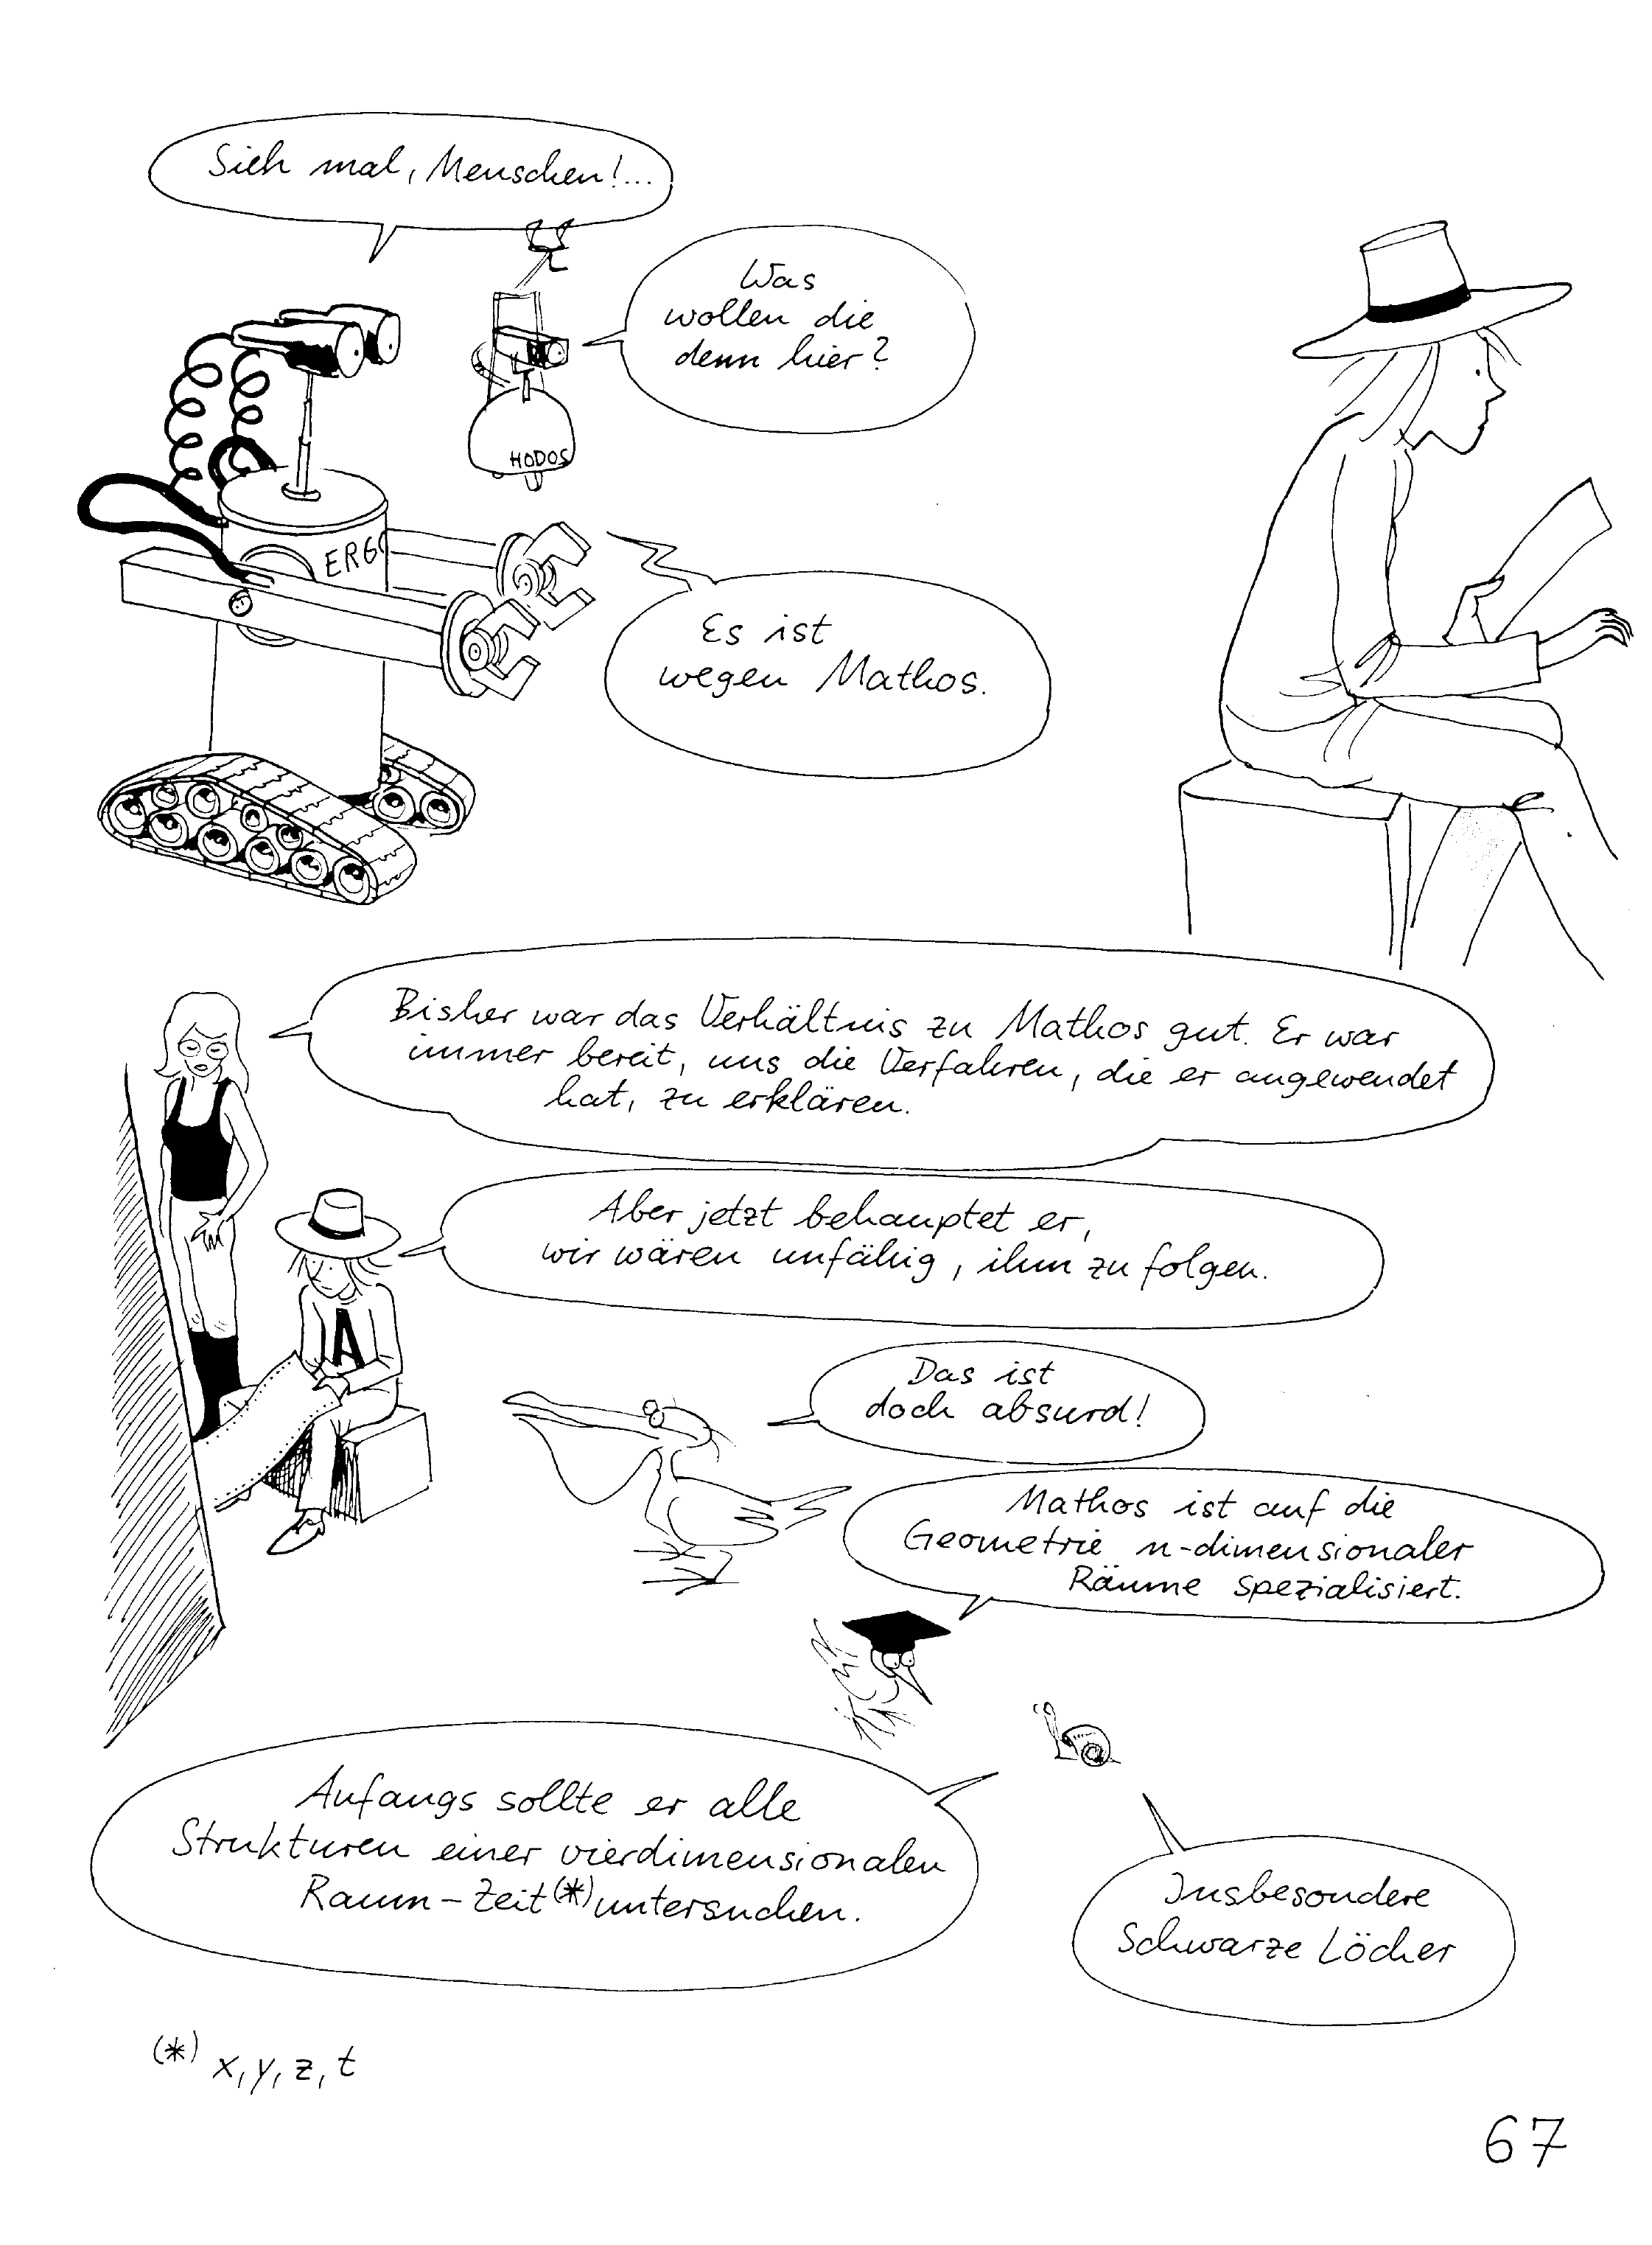 Sieh mal, Menschen!...
Was
wollen die
denn hier?
HODOS
ERGO
Es ist
wegen Mathos.
Bisher war das Verhältnis zu Mathos gut. Er war
immer bereit, uns die Verfahren, die er angewendet
hat, zu erklären.
Aber jetzt behauptet er,
wir wären unfähig, ihm zu folgen.
A
Das ist
doch absurd!
Mathos ist auf die
Geometrie n-dimensionaler
Räume spezialisiert.
Anfangs sollte er alle
Strukturen einer vierdimensionalen
Raum-Zeit(*) untersuchen.
Insbesondere
Schwarze Löcher
(*) x, y, z, t
67